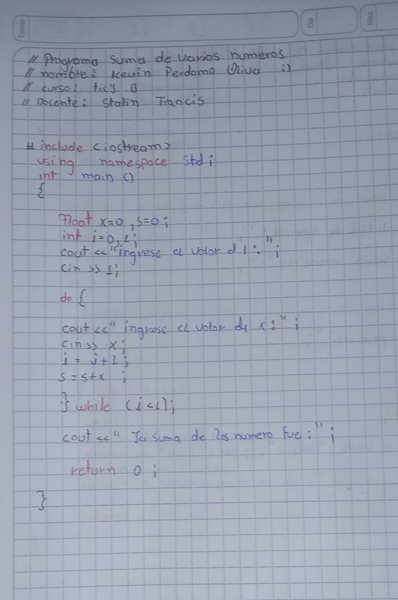 Tema
Día
Mes
// Programa suma de varios numeros
// nombre: Kevin Perdomo Oliva :)
// curso: tic's B
// Docente: Stalin Francis
# include <iostream>
using namespace std;
int main ()
{
Float x=0, s=0;
int i=0, L;
cout << "ingrese el valor d L: ";
cin >> L;
do {
cout << " ingrese el valor de x: " ;
cin >> x;
i = i+1;
s = s+x ;
} while (i<L);
cout << " la suma de los numero fue : " ;
return 0 ;
}